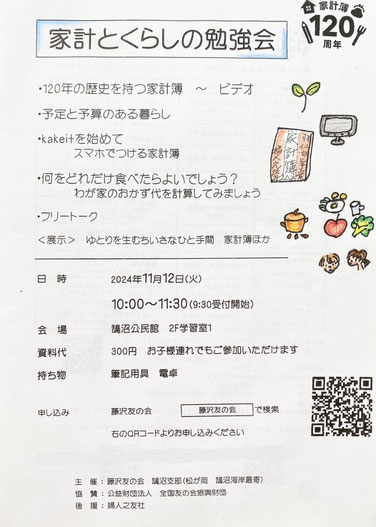 家計簿
120
周年
家計とくらしの勉強会
・120年の歴史を持つ家計簿 〜 ビデオ
・予定と予算のある暮らし
・kakeitを始めて
スマホでつける家計簿
・何をどれだけ食べたらよいでしょう？
わが家のおかず代を計算してみましょう
・フリートーク
＜展示＞ ゆとりを生むちいさなひと手間 家計簿ほか
家計簿
日 時 2024年11月12日(火)
10:00〜11:30(9:30受付開始)
会 場 鵠沼公民館 2F学習室1
資料代 300円 お子様連れでもご参加いただけます
持ち物 筆記用具 電卓
申し込み 藤沢友の会 藤沢友の会 で検索
右のQRコードよりお申し込みください
主 催：藤沢友の会 鵠沼支部(松が岡 鵠沼海岸最寄)
協 賛：公益財団法人 全国友の会振興財団
後 援：婦人之友社